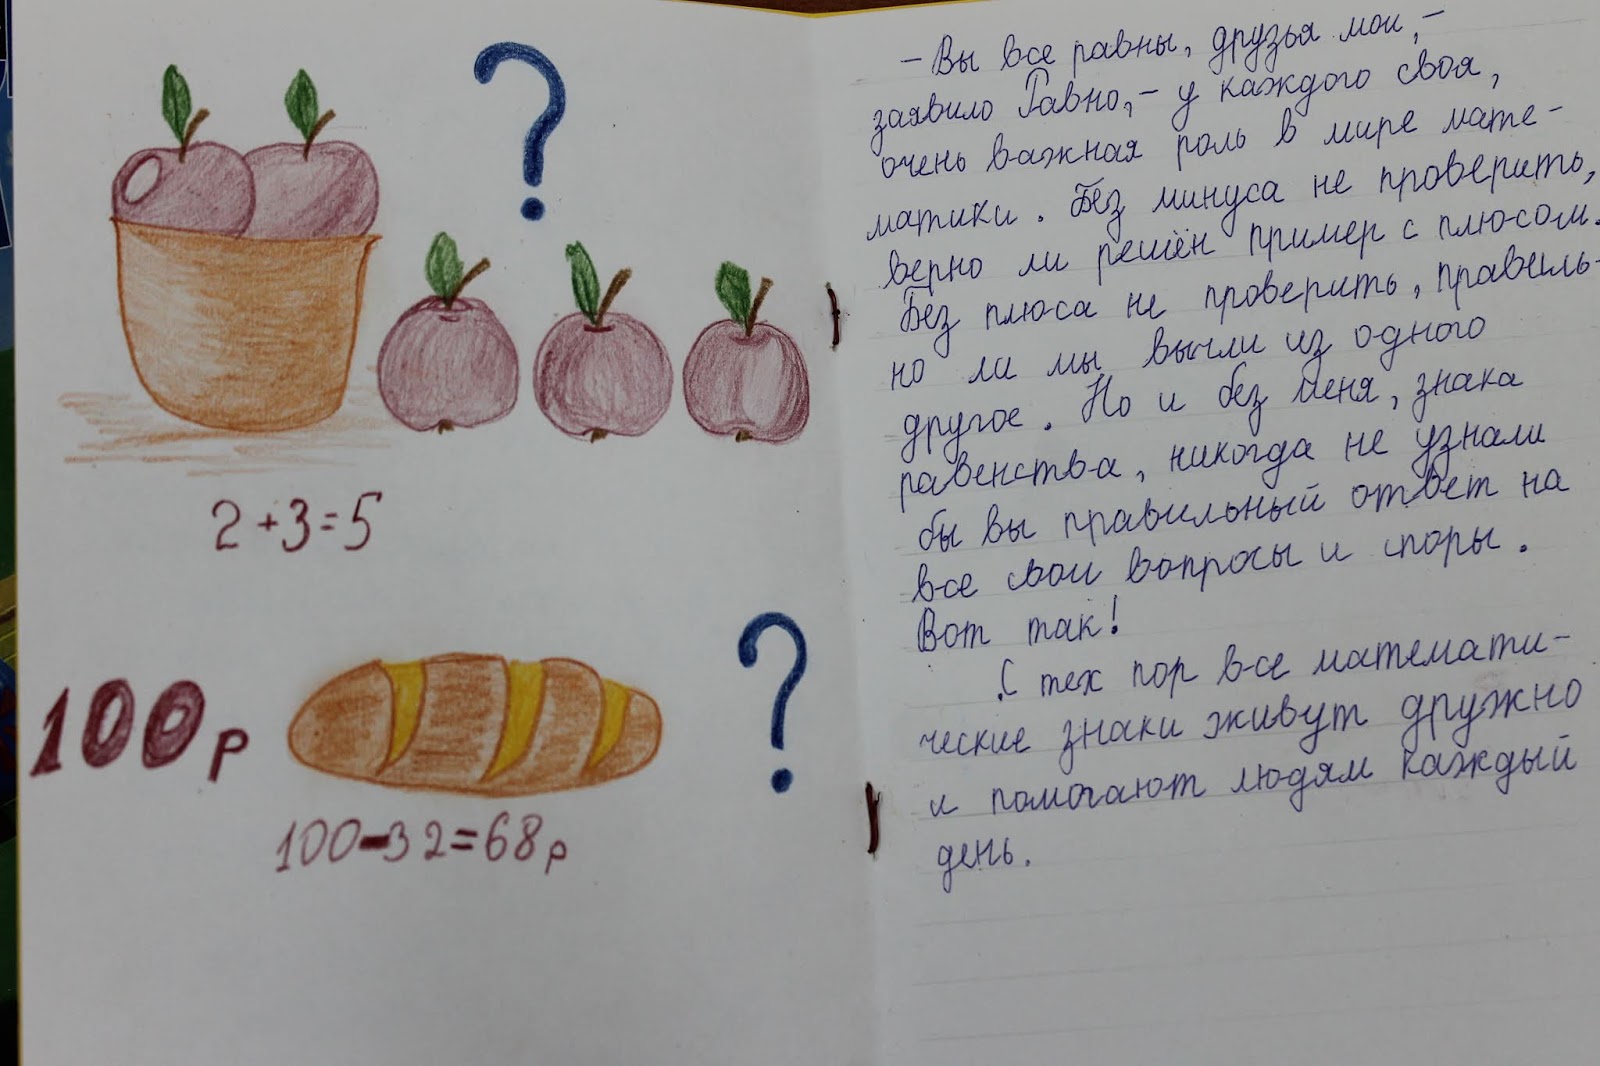 ?
2+3=5
100р
?
100-32=68р
- Вы все равны, друзья мои, -
заявило Равно, - у каждого своя,
очень важная роль в мире мате-
матики. Без минуса не проверить,
верно ли решён пример с плюсом.
Без плюса не проверить, правиль-
но ли мы вычли из одного
другое. Но и без меня, знака
равенства, никогда не узнали
бы вы правильный ответ на
все свои вопросы и споры.
Вот так!
С тех пор все математи-
ческие знаки живут дружно
и помогают людям каждый
день.